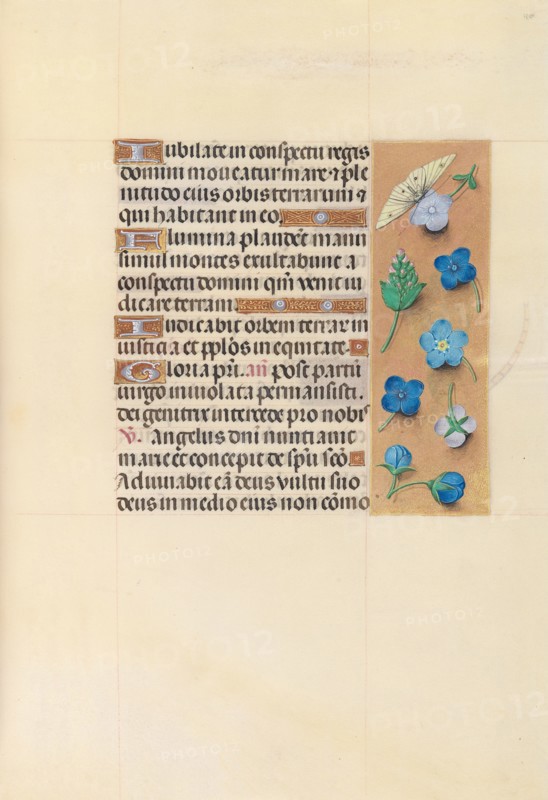 Iubilate in conspectu regis
domini moueatur mare ⁊ ple
nitudo eius orbis terrarum ⁊
qui habitant in eo
Flumina plaudēt manu
simul montes exultabunt a
conspectu domini qm̄ venit iu
dicare terram
Iudicabit orbem terrar in
iusticia et pplōs in equitate.
Gloria pri. an̄ post partū
uirgo inuiolata permansisti.
dei genitrix intercede pro nobis
V. Angelus dn̄i nuntiauit
marie et concepit de spū scō
Adiuuabit eā deus vultu suo
deus in medio eius non cōmo
PHOTO12